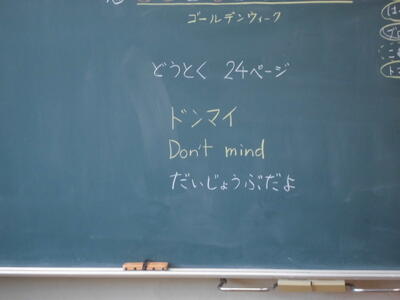 ゴールデンウィーク
どうとく 24ページ
ドンマイ
Don't mind
だいじょうぶだよ